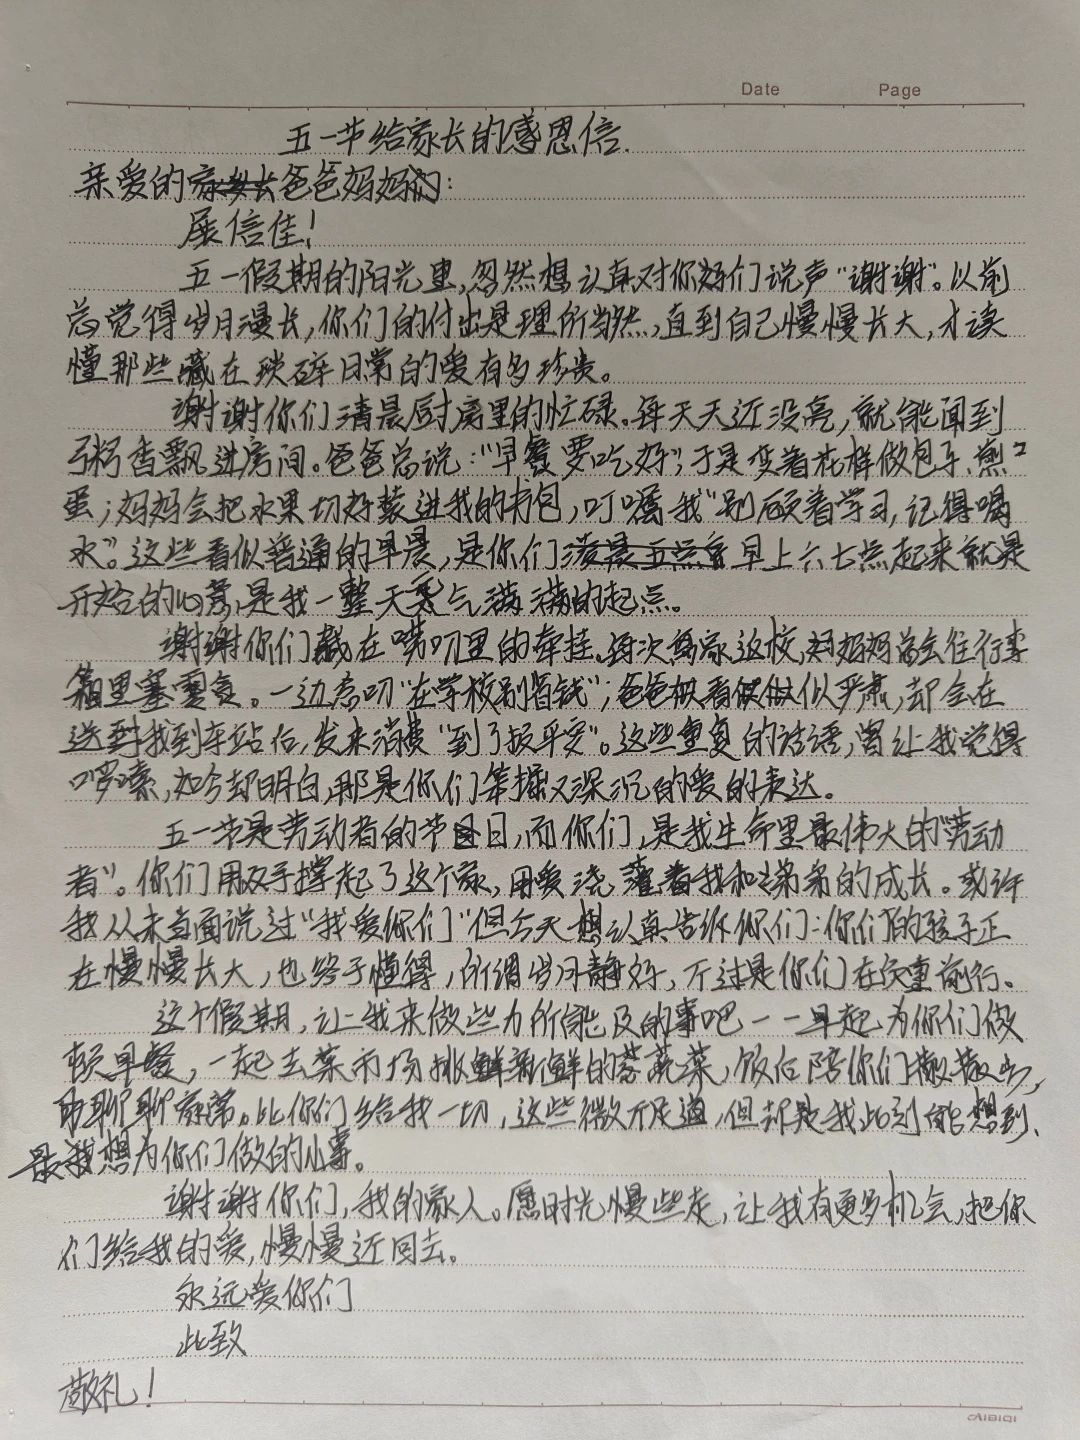 Date Page
五一节给家长的感恩信.
亲爱的爸爸妈妈:
展信佳!
五一假期的阳光里,忽然想认真对你们说声“谢谢”。以前
总觉得岁月漫长,你们的付出是理所当然,直到自己慢慢长大,才读
懂那些藏在琐碎日常的爱有多珍贵。
谢谢你们清晨厨房里的忙碌。每天天近没亮,就能闻到
粥香飘进房间。爸爸总说:“早餐要吃好”,于是变着花样做包子、煎
蛋;妈妈会把水果切好装进我的书包,叮嘱我“别顾着学习,记得喝
水”。这些看似普通的早晨,是你们早上六七点起来就是
开始的心意,是我一整天元气满满的起点。
谢谢你们藏在唠叨里的牵挂。每次离家返校,妈妈总会往行李
箱里塞零食。一边念叨“在学校别省钱”;爸爸看似严肃,却会在
送我到车站后,发来消息“到了报平安”。这些重复的话语,曾让我觉得
啰嗦,如今却明白,那是你们笨拙又深沉的爱的表达。
五一节是劳动者的节日,而你们,是我生命里最伟大的“劳动
者”。你们用双手撑起了这个家,用爱浇灌着我和弟弟的成长。或许
我从未当面说过“我爱你们”但今天想认真告诉你们:你们的孩子正
在慢慢长大,也终于懂得,所谓岁月静好,不过是你们在负重前行。
这个假期,让我来做些力所能及的事吧——早起为你们做
顿早餐,一起去菜市场挑新鲜的蔬菜,饭后陪你们散散步,
聊聊家常。比你们给我一切,这些微不足道,但却是我此刻能想到、
最想为你们做的小事。
谢谢你们,我的家人。愿时光慢些走,让我有更多机会,把你
们给我的爱,慢慢还回去。
永远爱你们
此致
敬礼!
CAIBIQI